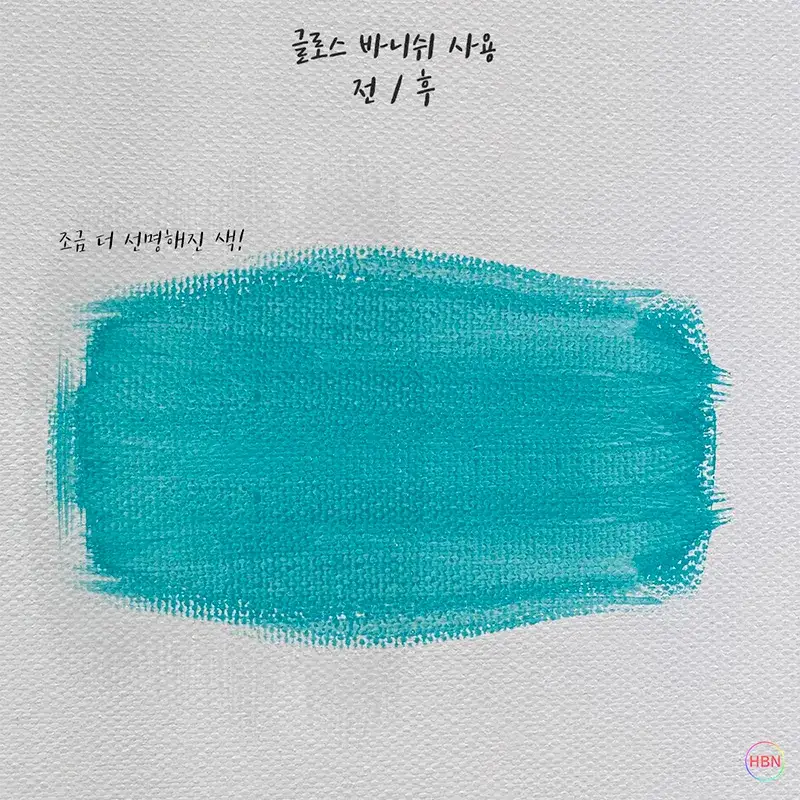 글로스 바니쉬 사용
전 / 후
조금 더 선명해진 색!
HBN